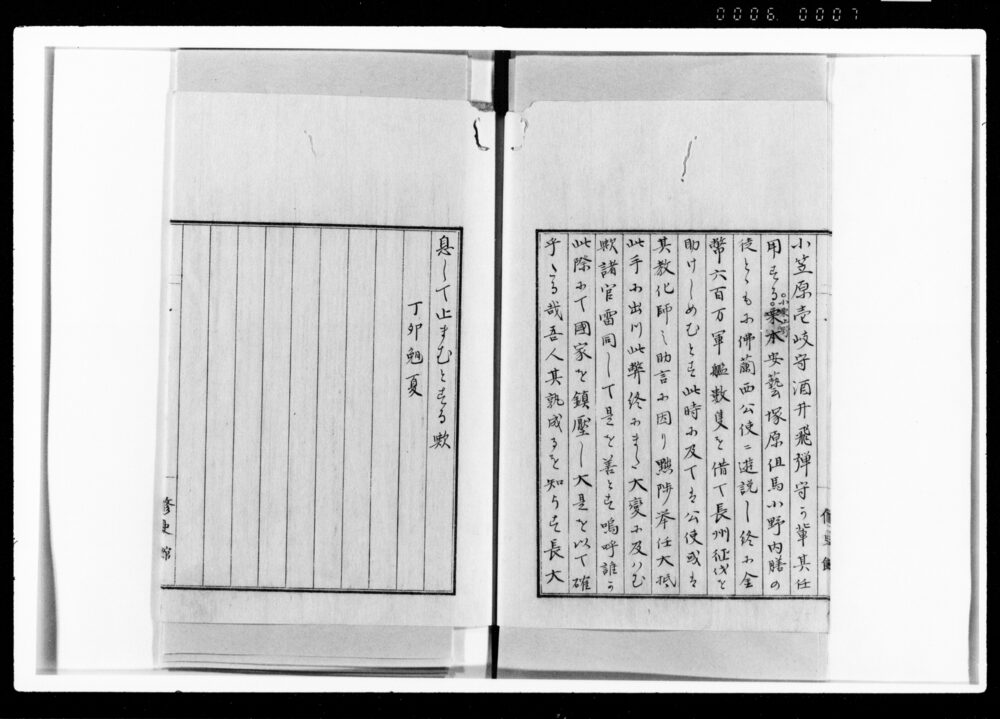 0006 0007
小笠原壱岐守酒井飛弾守ヶ輩其任
用せる栗本安藝塚原但馬小野内膳の
徒ともに佛蘭西公使ニ遊説し終に金
幣六百万軍艦数隻を借て長州征伐を
助けしめむとす此時に及ては公使或は
其教化師之助言に因り黜陟挙任大抵
此手に出川此弊終にまた大変に及ハむ
歟諸官雷同して是を善とす嗚呼誰か
此際にて國家を鎮壓し大是を以て確
乎たる哉吾人其熟成るを知らす長大
息して止まむとする歟
丁卯 夏
修史館